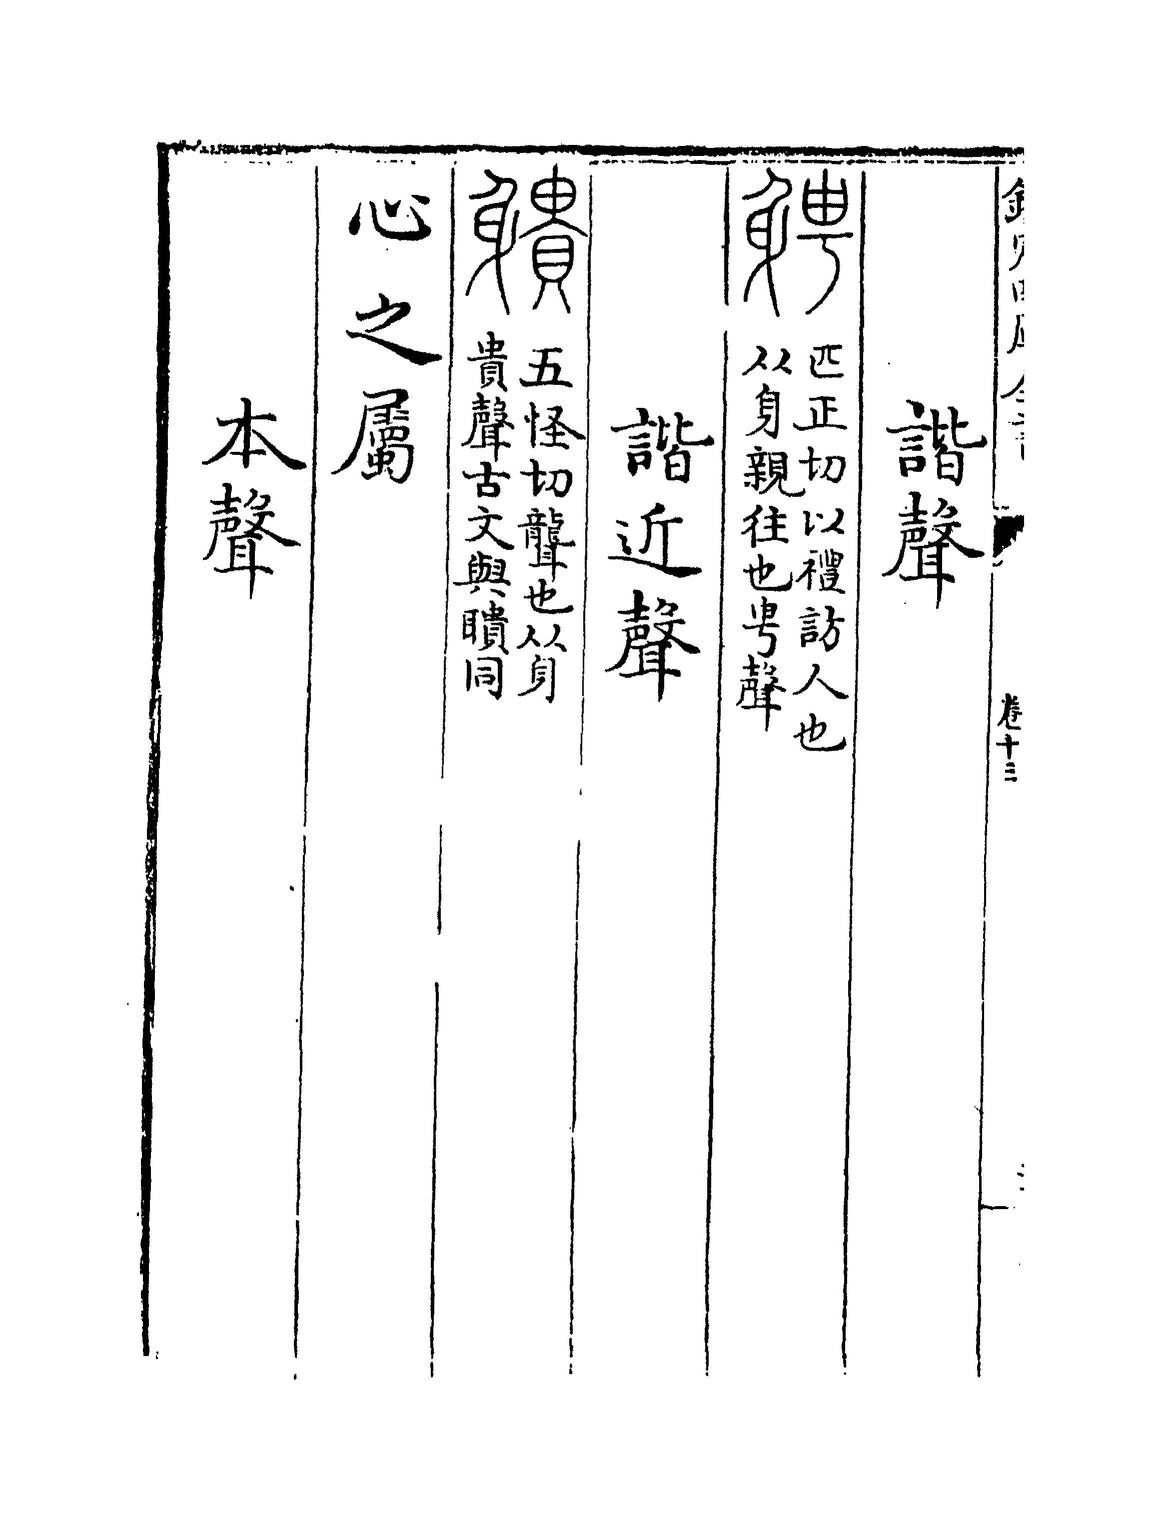 欽定四庫全書
卷十三
諧聲
䠼
匹正切以禮訪人也
从身親往也甹聲
諧近聲
五怪切聾也从身
貴聲古文與聵同
心之屬
本聲